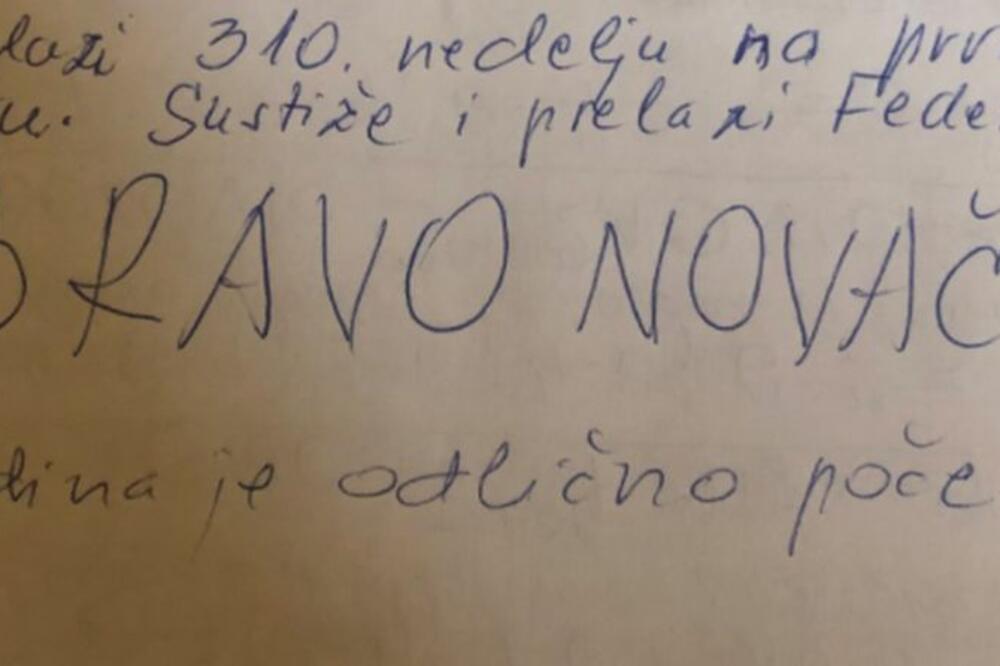 lazi 310. nedelju na prv
u. Sustiže i prelazi Fede
BRAVO NOVAČ
dina je odlično poče